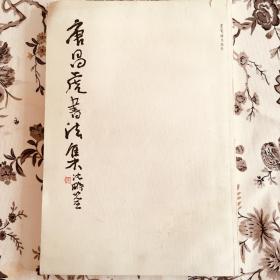 唐昌虎書法集
沈鵬簽